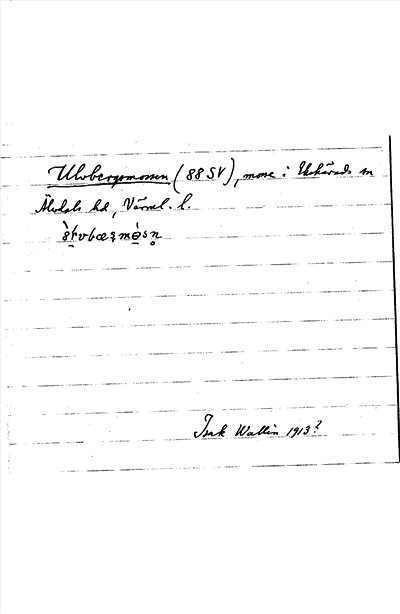 Ulvbergsmossen (88 SV), mosse i Ekshärads sn
Älvdals hd, Värml. l.
Isak Wallin 1913?